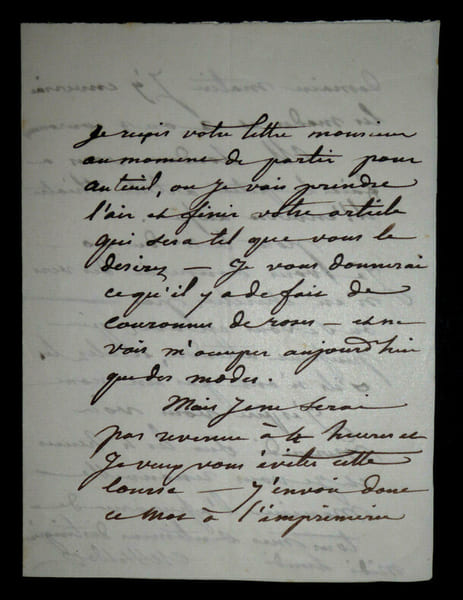 Je reçois votre lettre monsieur
au moment de partir pour
auteuil, ou je vais prendre
l'air et finir votre article
qui sera tel que vous le
desirez — Je vous donnerai
ce qu'il y a de fait de
couronnes de roses — et ne
vais m'occuper aujourd'hui
que des modes.
Mais je ne serai
pas revenue à 4 heures et
Je veux vous éviter cette
course — J'envoie donc
ce mot à l'imprimerie